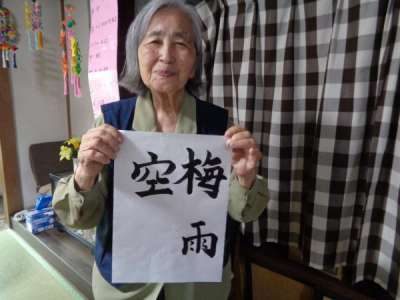 梅雨
空